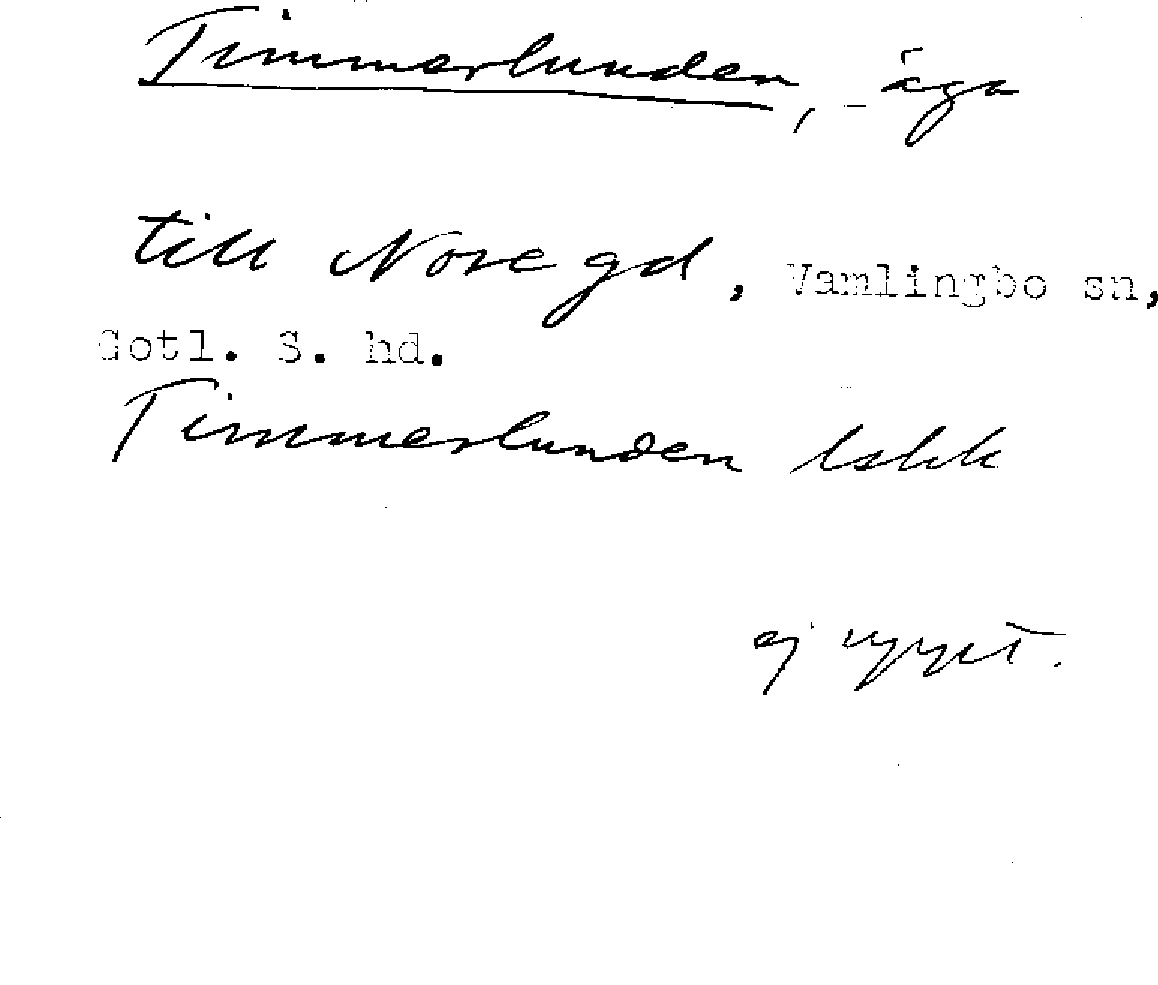 Timmerlunden, - äga
till Nore gd, Vamlingbo sn,
Gotl. S. hd.
Timmerlunden
ej uppt.